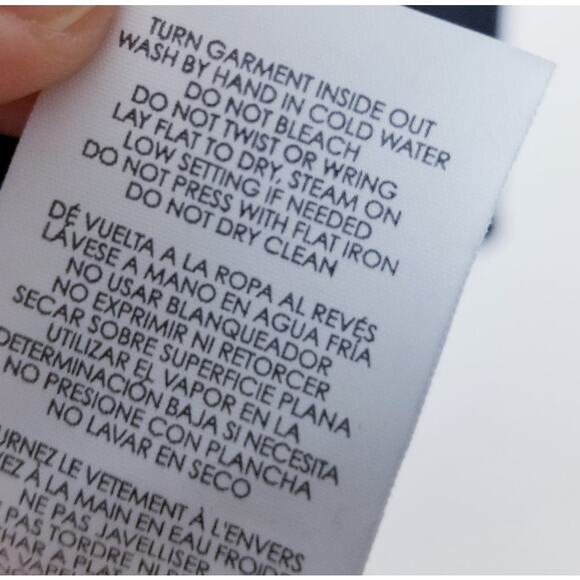 TURN GARMENT INSIDE OUT
WASH BY HAND IN COLD WATER
DO NOT BLEACH
DO NOT TWIST OR WRING
LAY FLAT TO DRY, STEAM ON
LOW SETTING IF NEEDED
DO NOT PRESS WITH FLAT IRON
DO NOT DRY CLEAN
DÉ VUELTA A LA ROPA AL REVÉS
LÁVESE A MANO EN AGUA FRÍA
NO USAR BLANQUEADOR
NO EXPRIMIR NI RETORCER
SECAR SOBRE SUPERFICIE PLANA
UTILIZAR EL VAPOR EN LA
DETERMINACIÓN BAJA SI NECESITA
NO PRESIONE CON PLANCHA
NO LAVAR EN SECO
LE VETEMENT À L'ENVERS
À LA MAIN EN EAU FROIDE
NE PAS JAVELLISER
PAS TORDRE NI
A